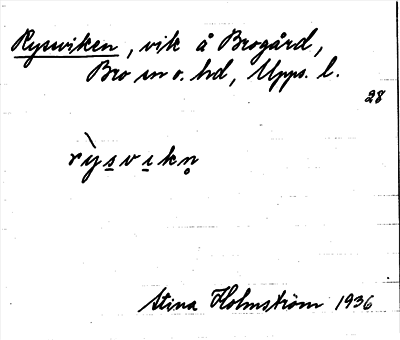 Rysviken, vik å Brogård,
Bro sn o. hd, Upps. l.
28
rỳs̲vi̲kn̥
Stina Holmström 1936